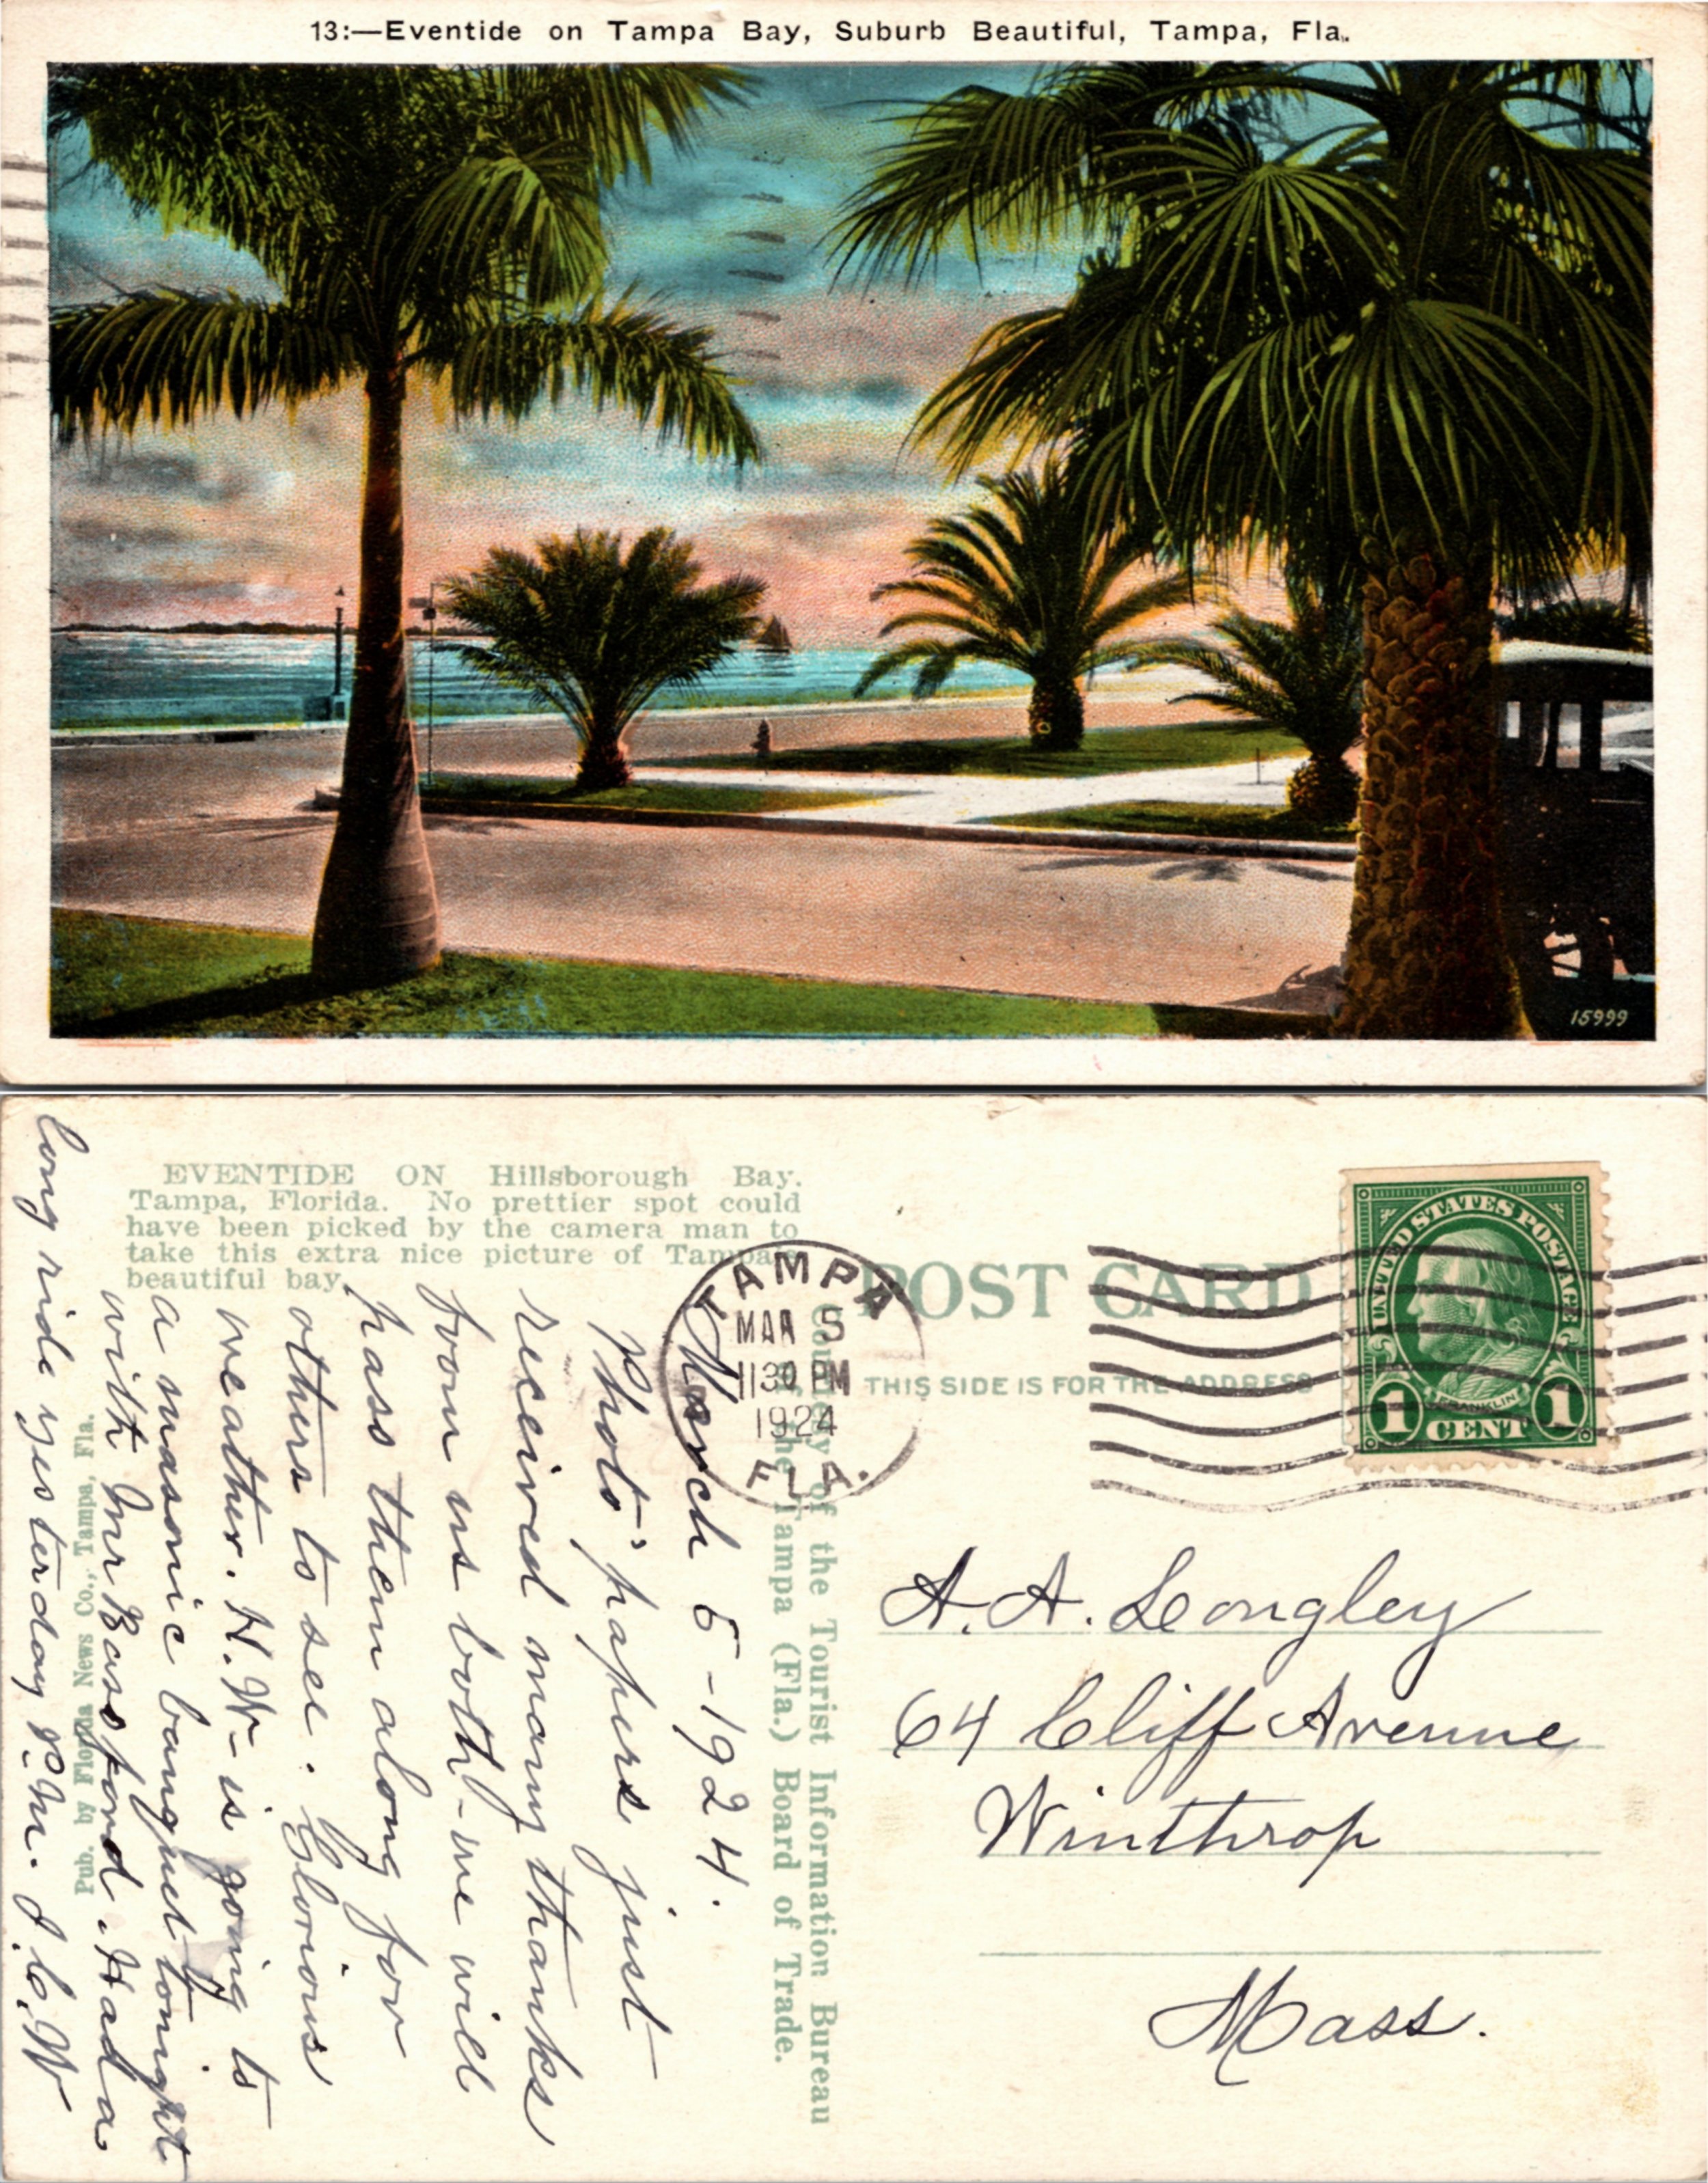 13:—Eventide on Tampa Bay, Suburb Beautiful, Tampa, Fla.
15999
EVENTIDE ON Hillsborough Bay.
Tampa, Florida. No prettier spot could
have been picked by the camera man to
take this extra nice picture of Tampa's
beautiful bay.
POST CARD
THIS SIDE IS FOR THE ADDRESS
TAMPA
MAR 5
1130 PM
1924
FLA.
UNITED STATES POSTAGE
FRANKLIN
1 CENT 1
Courtesy of the Tourist Information Bureau
of the Tampa (Fla.) Board of Trade.
Pub. by Florida News Co., Tampa, Fla.
March 5-1924.
Photo's papers just
received many thanks
from us both - we will
pass them along for
others to see. Glorious
weather. H.W- is going to
a masonic banquet tonight
with Mr Bassford. Had a
long ride yesterday P.M. J.C.W
A. A. Longley
64 Cliff Avenue
Winthrop
Mass.